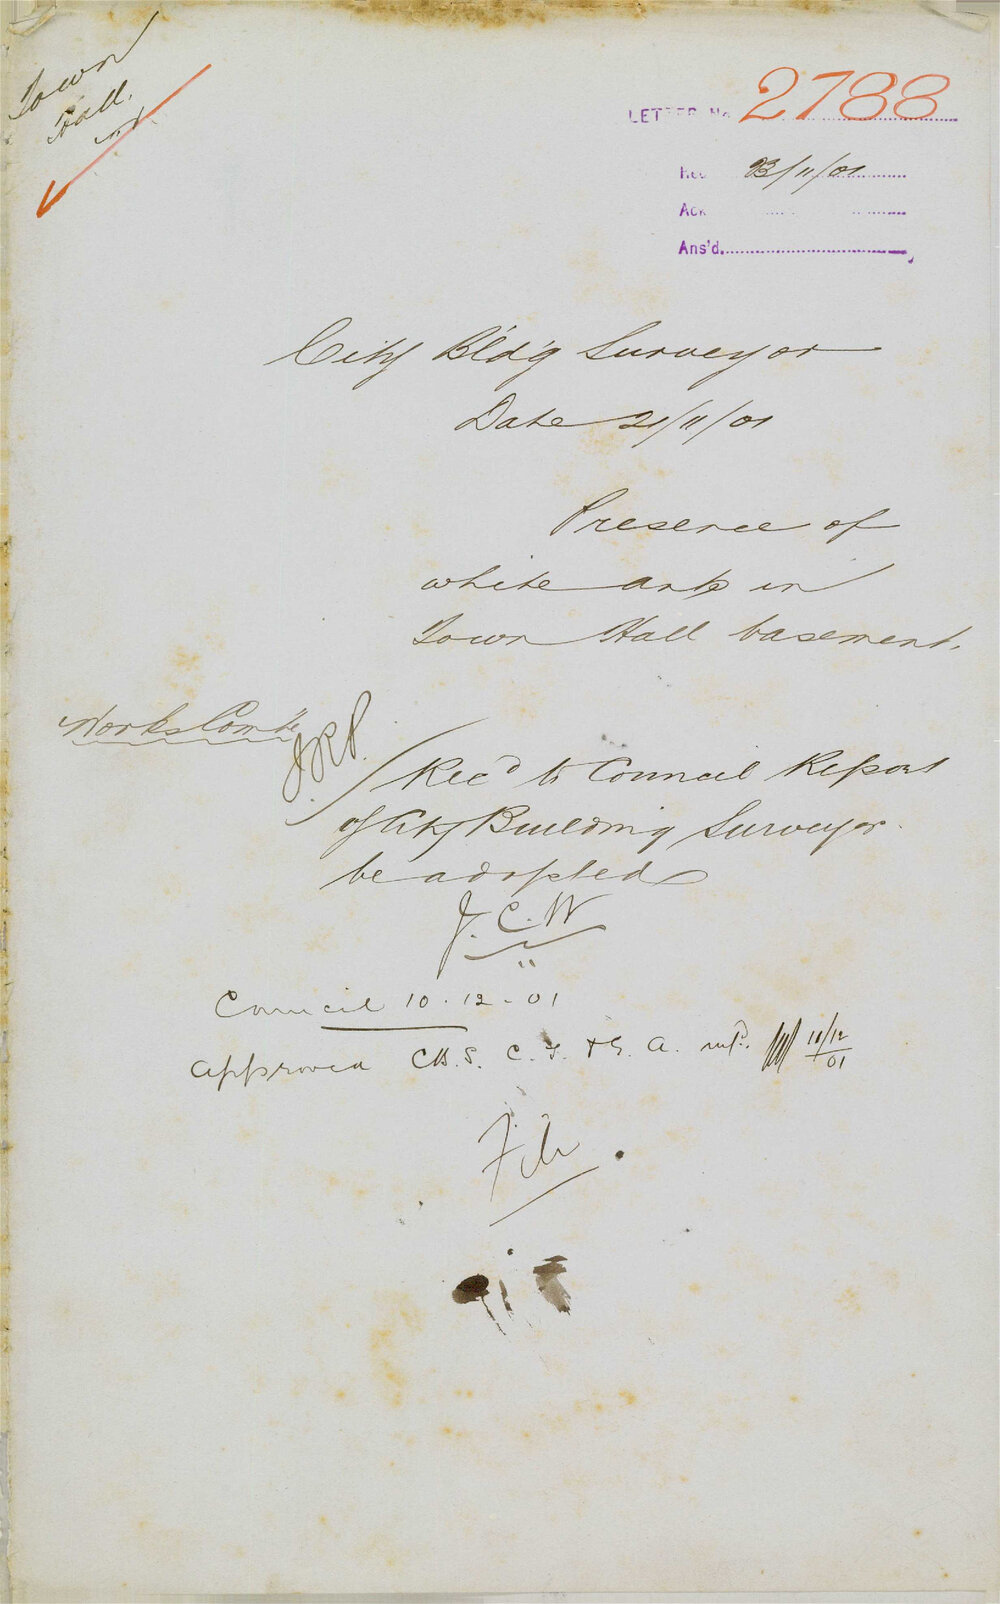 Town
Hall.
LETTER No. 2788
Rec 23/11/01
Ack
Ans'd.
City Bld'g Surveyor
Date 21/11/01
Presence of
white ants in
Town Hall basement.
Works Com'te
J.R.P.
Rec'd to Council Report
of City Building Surveyor
be adopted
J. C. W
Council 10-12-01
Approved C.B.S. C.T. & G. A. 11/12/01
File